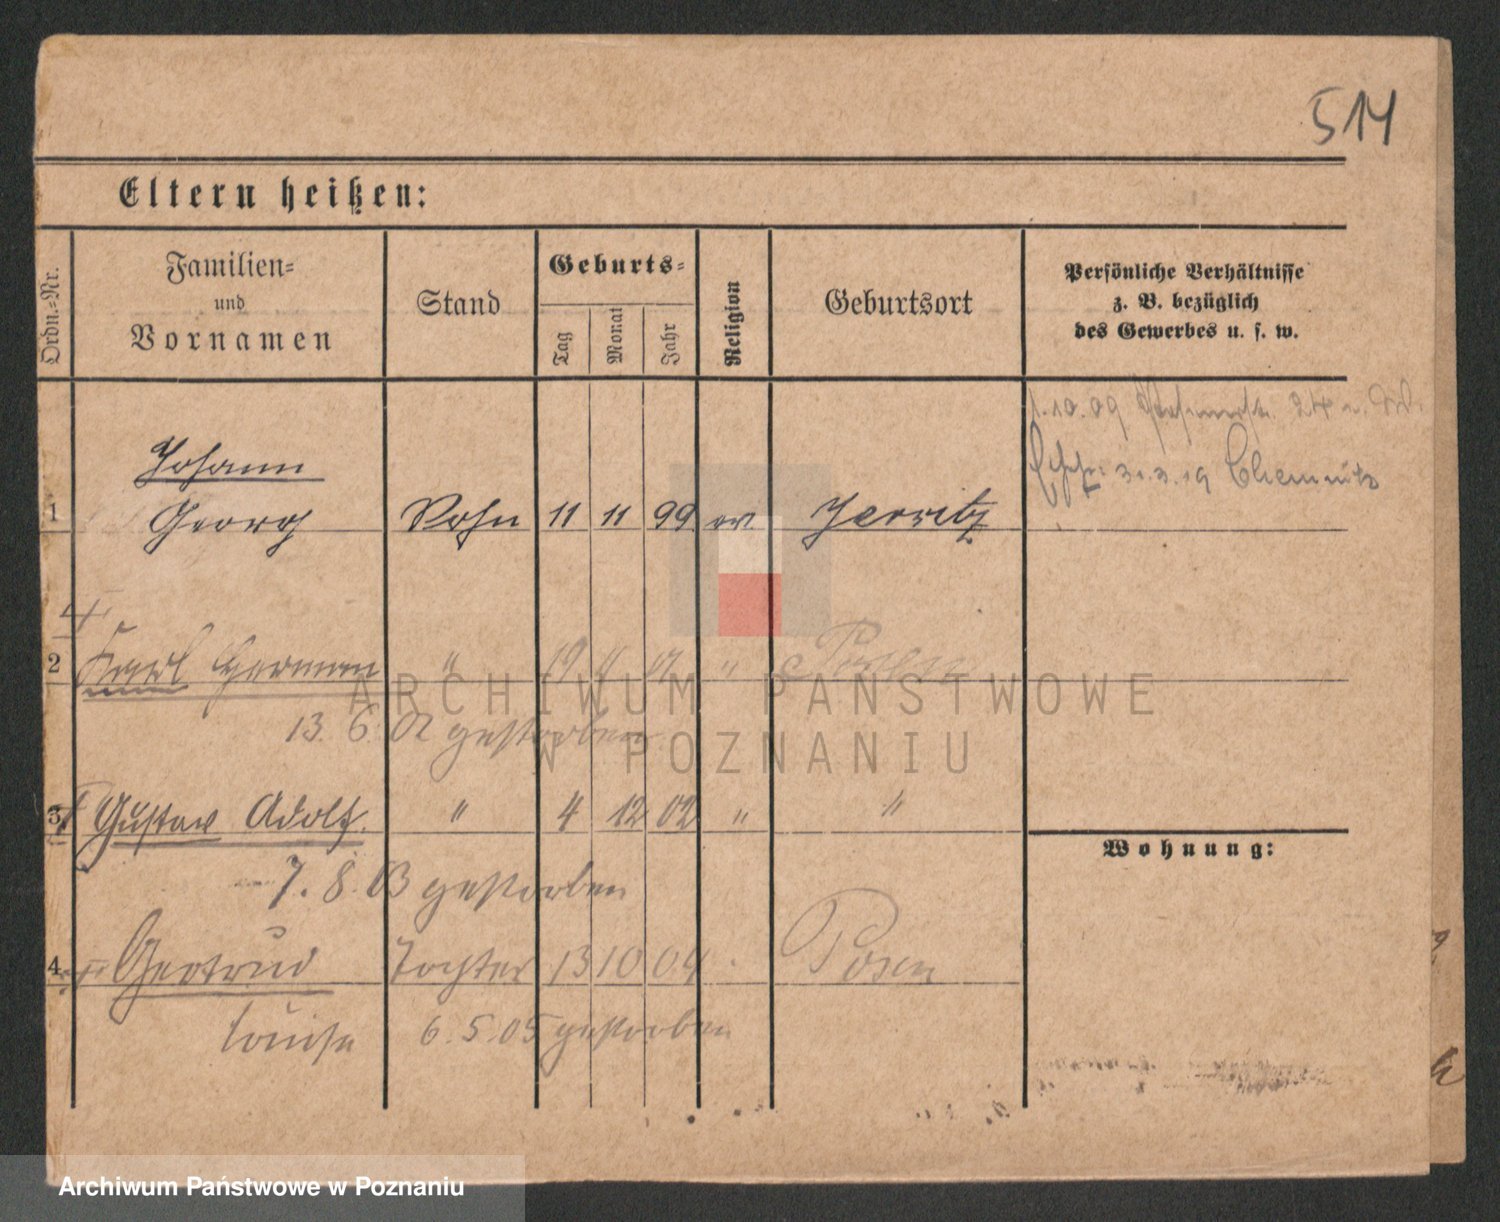 514
Eltern heißen:
Ordn.-Nr.
Familien-
und
Vornamen
Stand
Geburts-
Tag
Monat
Jahr
Religion
Geburtsort
Persönliche Verhältnisse
z. B. bezüglich
des Gewerbes u. s. w.
1.10.09 24
31.3.19 Chemnitz
Johann
1 Georg Sohn 11 11 99 ev Jerzitz
2 Karl Herman " 19 " "
13. 6. 02 gestorben
3 Gustav Adolf. " 4 12 02 " "
Wohnung:
7. 8. 03 gestorben
4 Gertrud Tochter 13 10 04 Posen
Louise 6. 5. 05 gestorben
ARCHIWUM PAŃSTWOWE
W POZNANIU
Archiwum Państwowe w Poznaniu